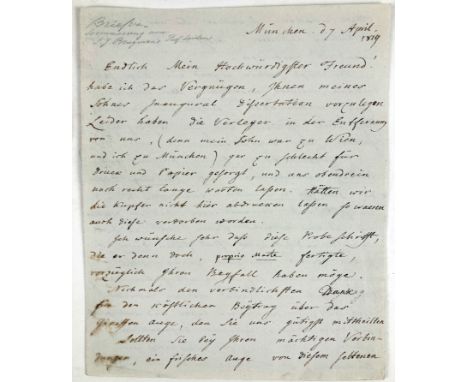 München d 7 April
1819
Endlich Mein Hochwürdigster Freund!
habe ich das Vergnügen, Ihnen meines
Sohnes Inaugural Dissertation vorzulegen
Leider haben die Verleger in der Entfernung
von uns, (denn mein Sohn war zu Wien,
und ich zu München) gar zu schlecht für
Druck und Papier gesorgt, und uns obendrein
noch recht lange warten lassen. Hätten wir
die Kupfer nicht hier abdrucken lassen so waeren
auch diese verdorben worden.
Ich wünsche sehr dass diese Probeschrift,
die er denn doch, fertigte,
vorzüglich Ihren Beyfall haben möge.
Nochmals den verbindlichsten Dank
für den köstlichen Beytrag über das
Giraffen Auge, den Sie uns gütigst mittheilten
Sollten Sie bey Ihren mächtigen Verbin-
dungen, ein frisches Auge von diesem seltenen